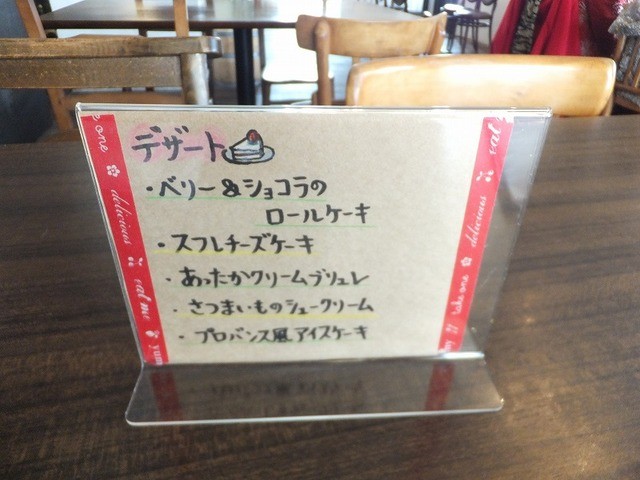 デザート
・ベリー&ショコラの
ロールケーキ
・スフレチーズケーキ
・あったかクリームブリュレ
・さつまいものシュークリーム
・プロバンス風アイスケーキ
e one
delicious
eat me
yum
eat
delicious
take one